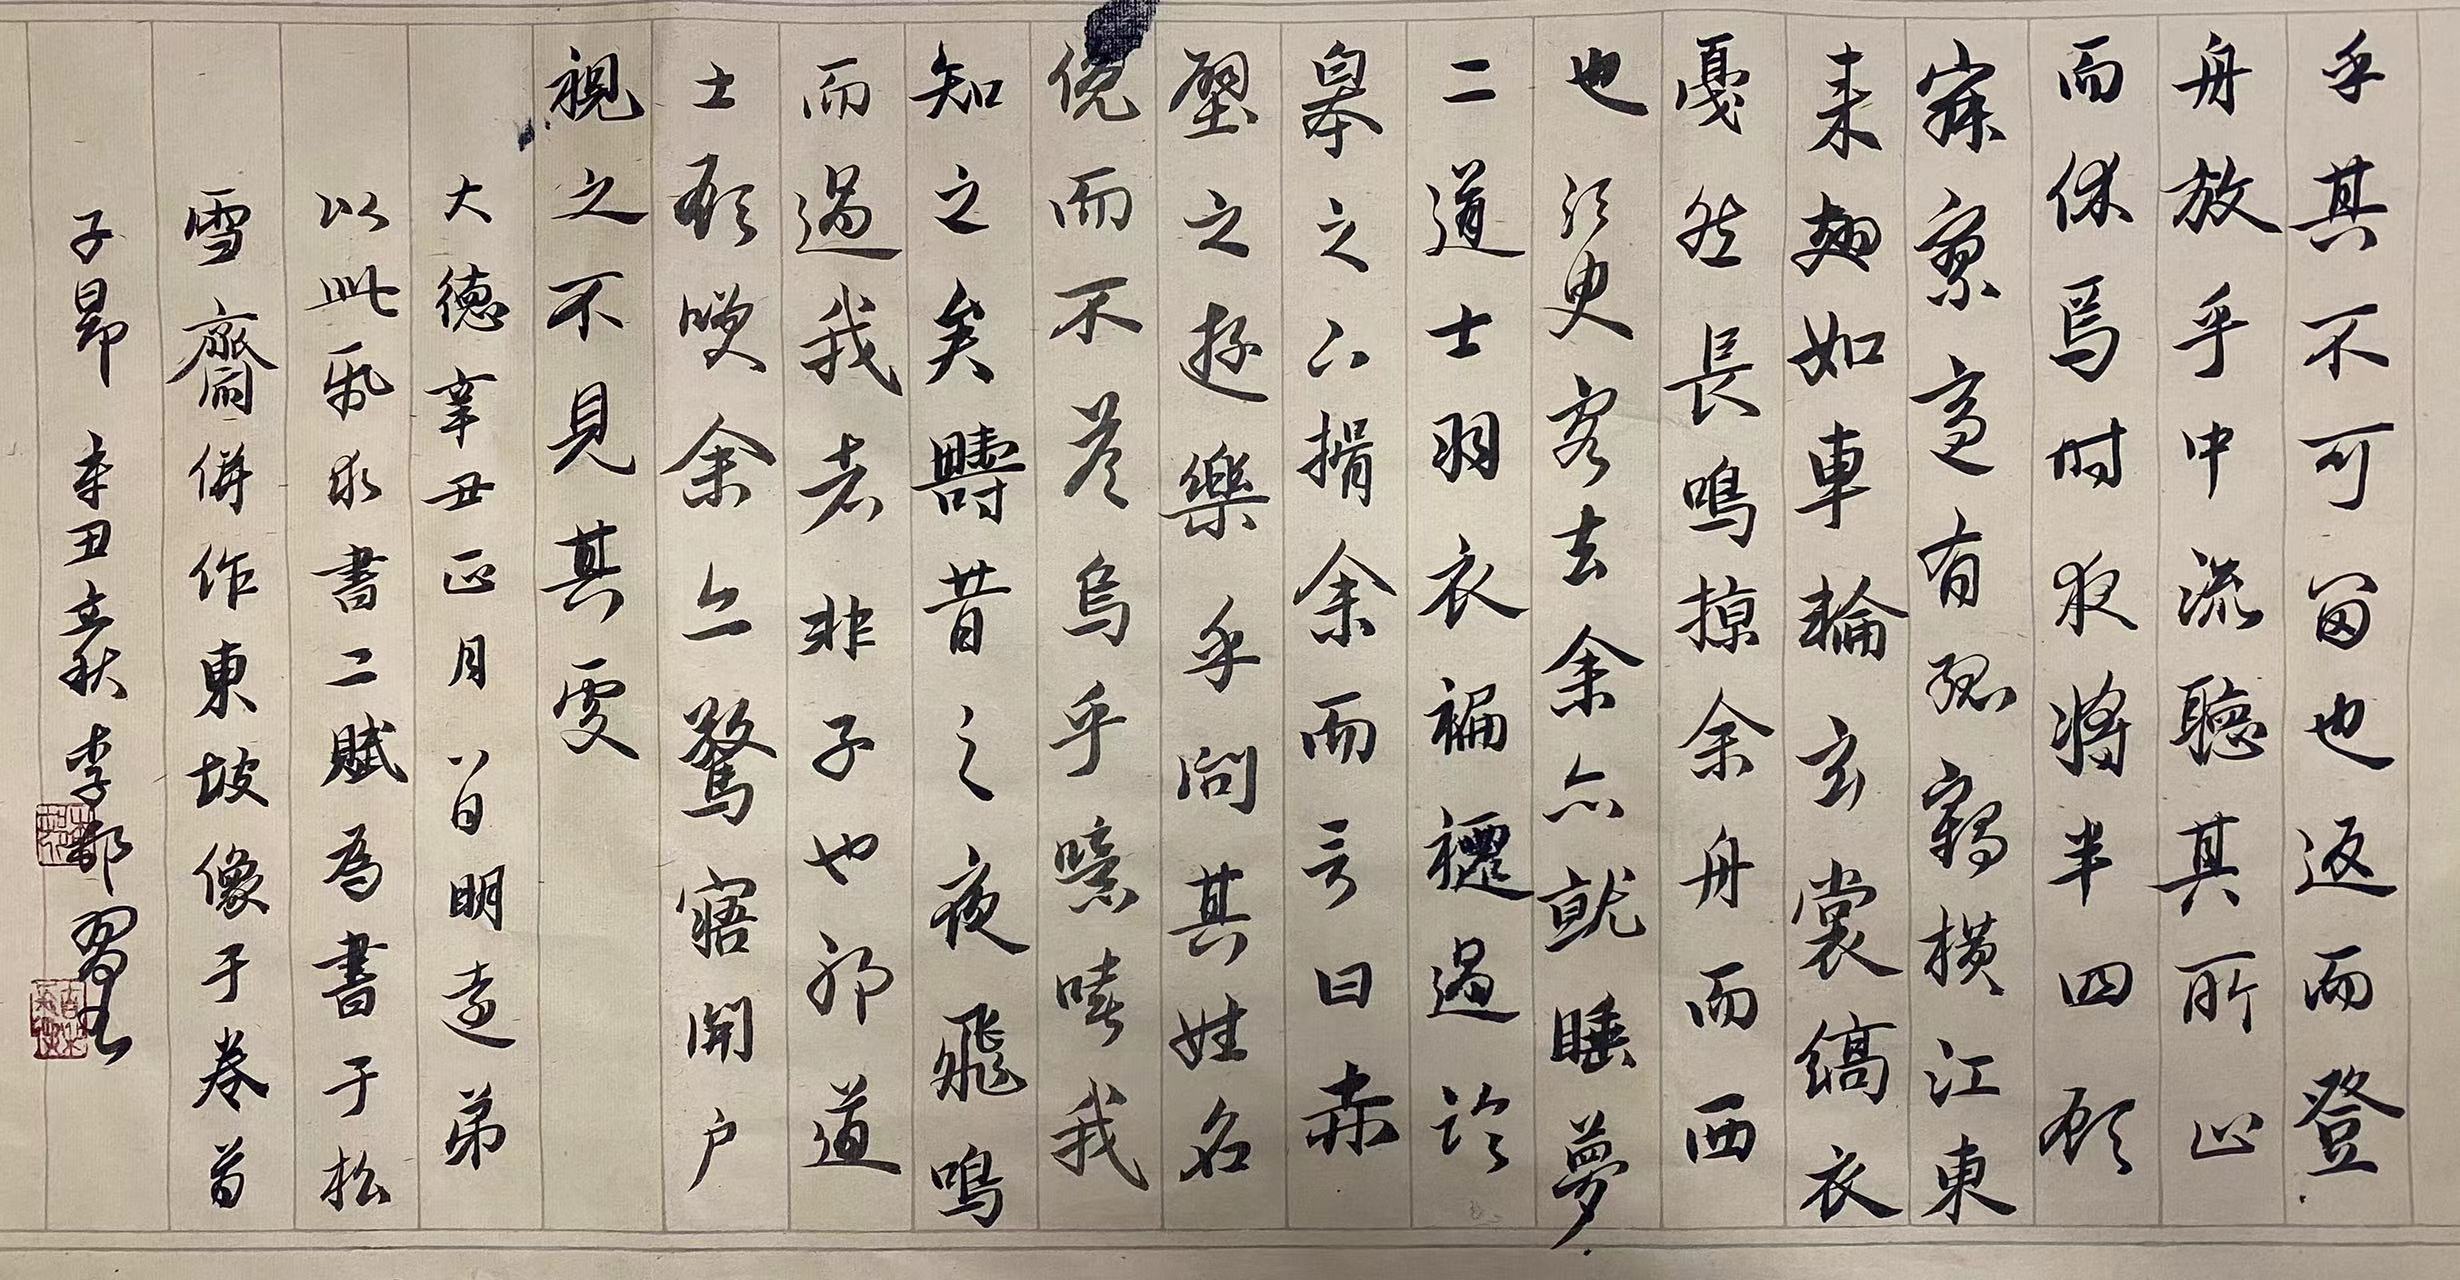 乎其不可留也返而登
舟放乎中流聽其所止
而休焉时夜將半四顧
寂寥適有孤鶴横江東
来翅如車輪玄裳縞衣
戞然長鳴掠余舟而西
也須臾客去余亦就睡夢
二道士羽衣褊褼過臨
皋之下揖余而言曰赤
壁之遊樂乎問其姓名
俛而不荅烏乎噫嘻我
知之矣疇昔之夜飛鳴
而過我者非子也邪道
士顧唉余亦驚寤開户
視之不見其處
大德辛丑正月八日明遠弟
以此紙求書二賦為書于松
雪齋併作東坡像于卷首
子昂 辛丑立秋李鄀習書